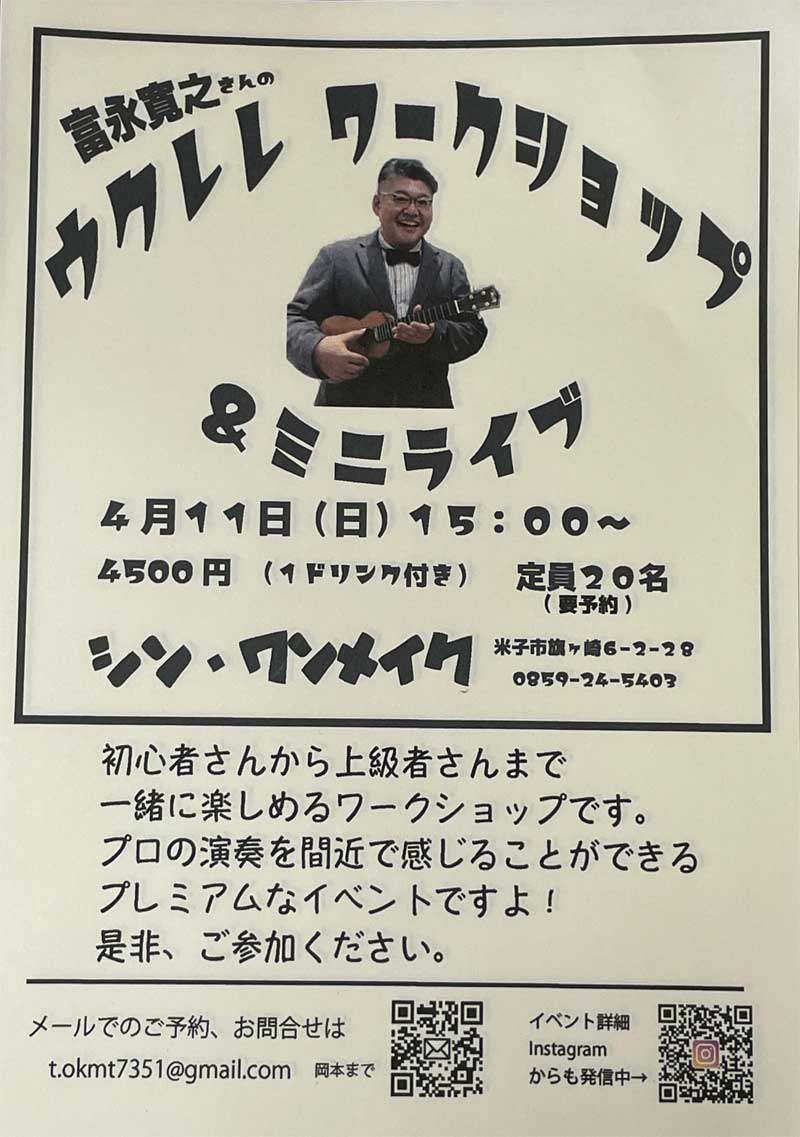 富永寛之さんの
ウクレレ ワークショップ
&ミニライブ
4月11日(日)15:00〜
4500円 (1ドリンク付き) 定員20名
(要予約)
シン・ワンメイク
米子市旗ヶ崎6-2-28
0859-24-5403
初心者さんから上級者さんまで
一緒に楽しめるワークショップです。
プロの演奏を間近で感じることができる
プレミアムなイベントですよ！
是非、ご参加ください。
メールでのご予約、お問合せは
t.okmt7351@gmail.com 岡本まで
イベント詳細
Instagram
からも発信中→